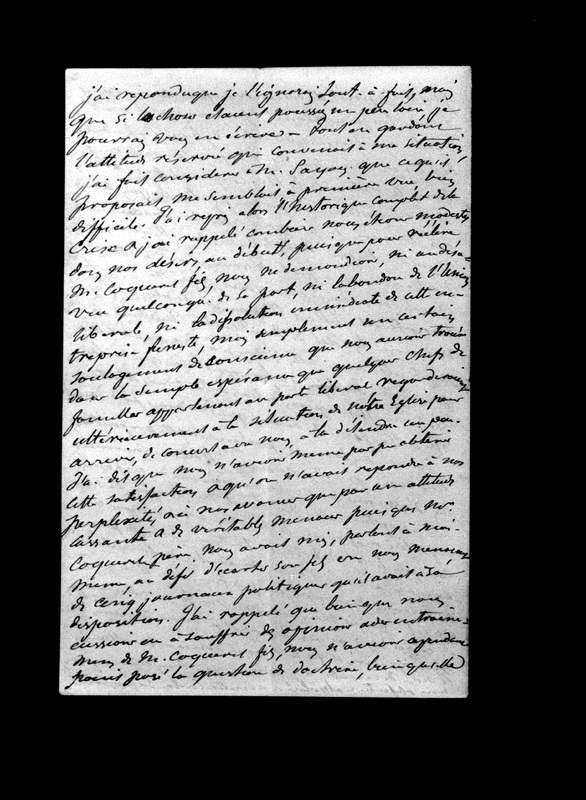 j'ai repondu que je l'ignorais tout-à-fait, mais
que si la chose etaient poussée un peu loin, je
pourrais vous en écrire — tout en gardant
l'attitude reservée qui convenait à ma situation
j'ai fait considerer à M. que ce qu'il
proposait me semblait à première vue, bien
difficile. J'ai repris alors l'historique complet de la
crise & j'ai rappelé combien nous étions modestes
dans nos désirs au début, puisque pour réélire
M. Coquerel fils, nous ne demandions ni un désa-
veu quelconque de sa part, ni l'abandon de l'Union
libérale, ni la dissolution immédiate de cette en-
treprise funeste, mais simplement un certain
soulagement de conscience que nous aurions trouvé
dans la simple espérance que quelques chefs de
famille appartenant au parti libéral regarderaient
ultérieurement à la situation de notre Eglise pour
arriver, de concert avec nous, à la détendre un peu.
J'ai dit que nous n'avions même pas pu obtenir
cette satisfaction & qu'on n'avait repondu à nos
perplexités, à nos avances que par une attitude
cassante & de véritables menaces puisque Mr.
Coquerel père nous avait mis, parlant à moi
même, au défi d'écarter son fils en nous menaçant
de cinq journaux politiques qu'il avait à sa
disposition. J'ai rappelé que bien que nous
eussions eu à souffrir des opinions
de M. Coquerel fils, nous n'avions cependant
point posé la question de doctrine, bien qu'elle